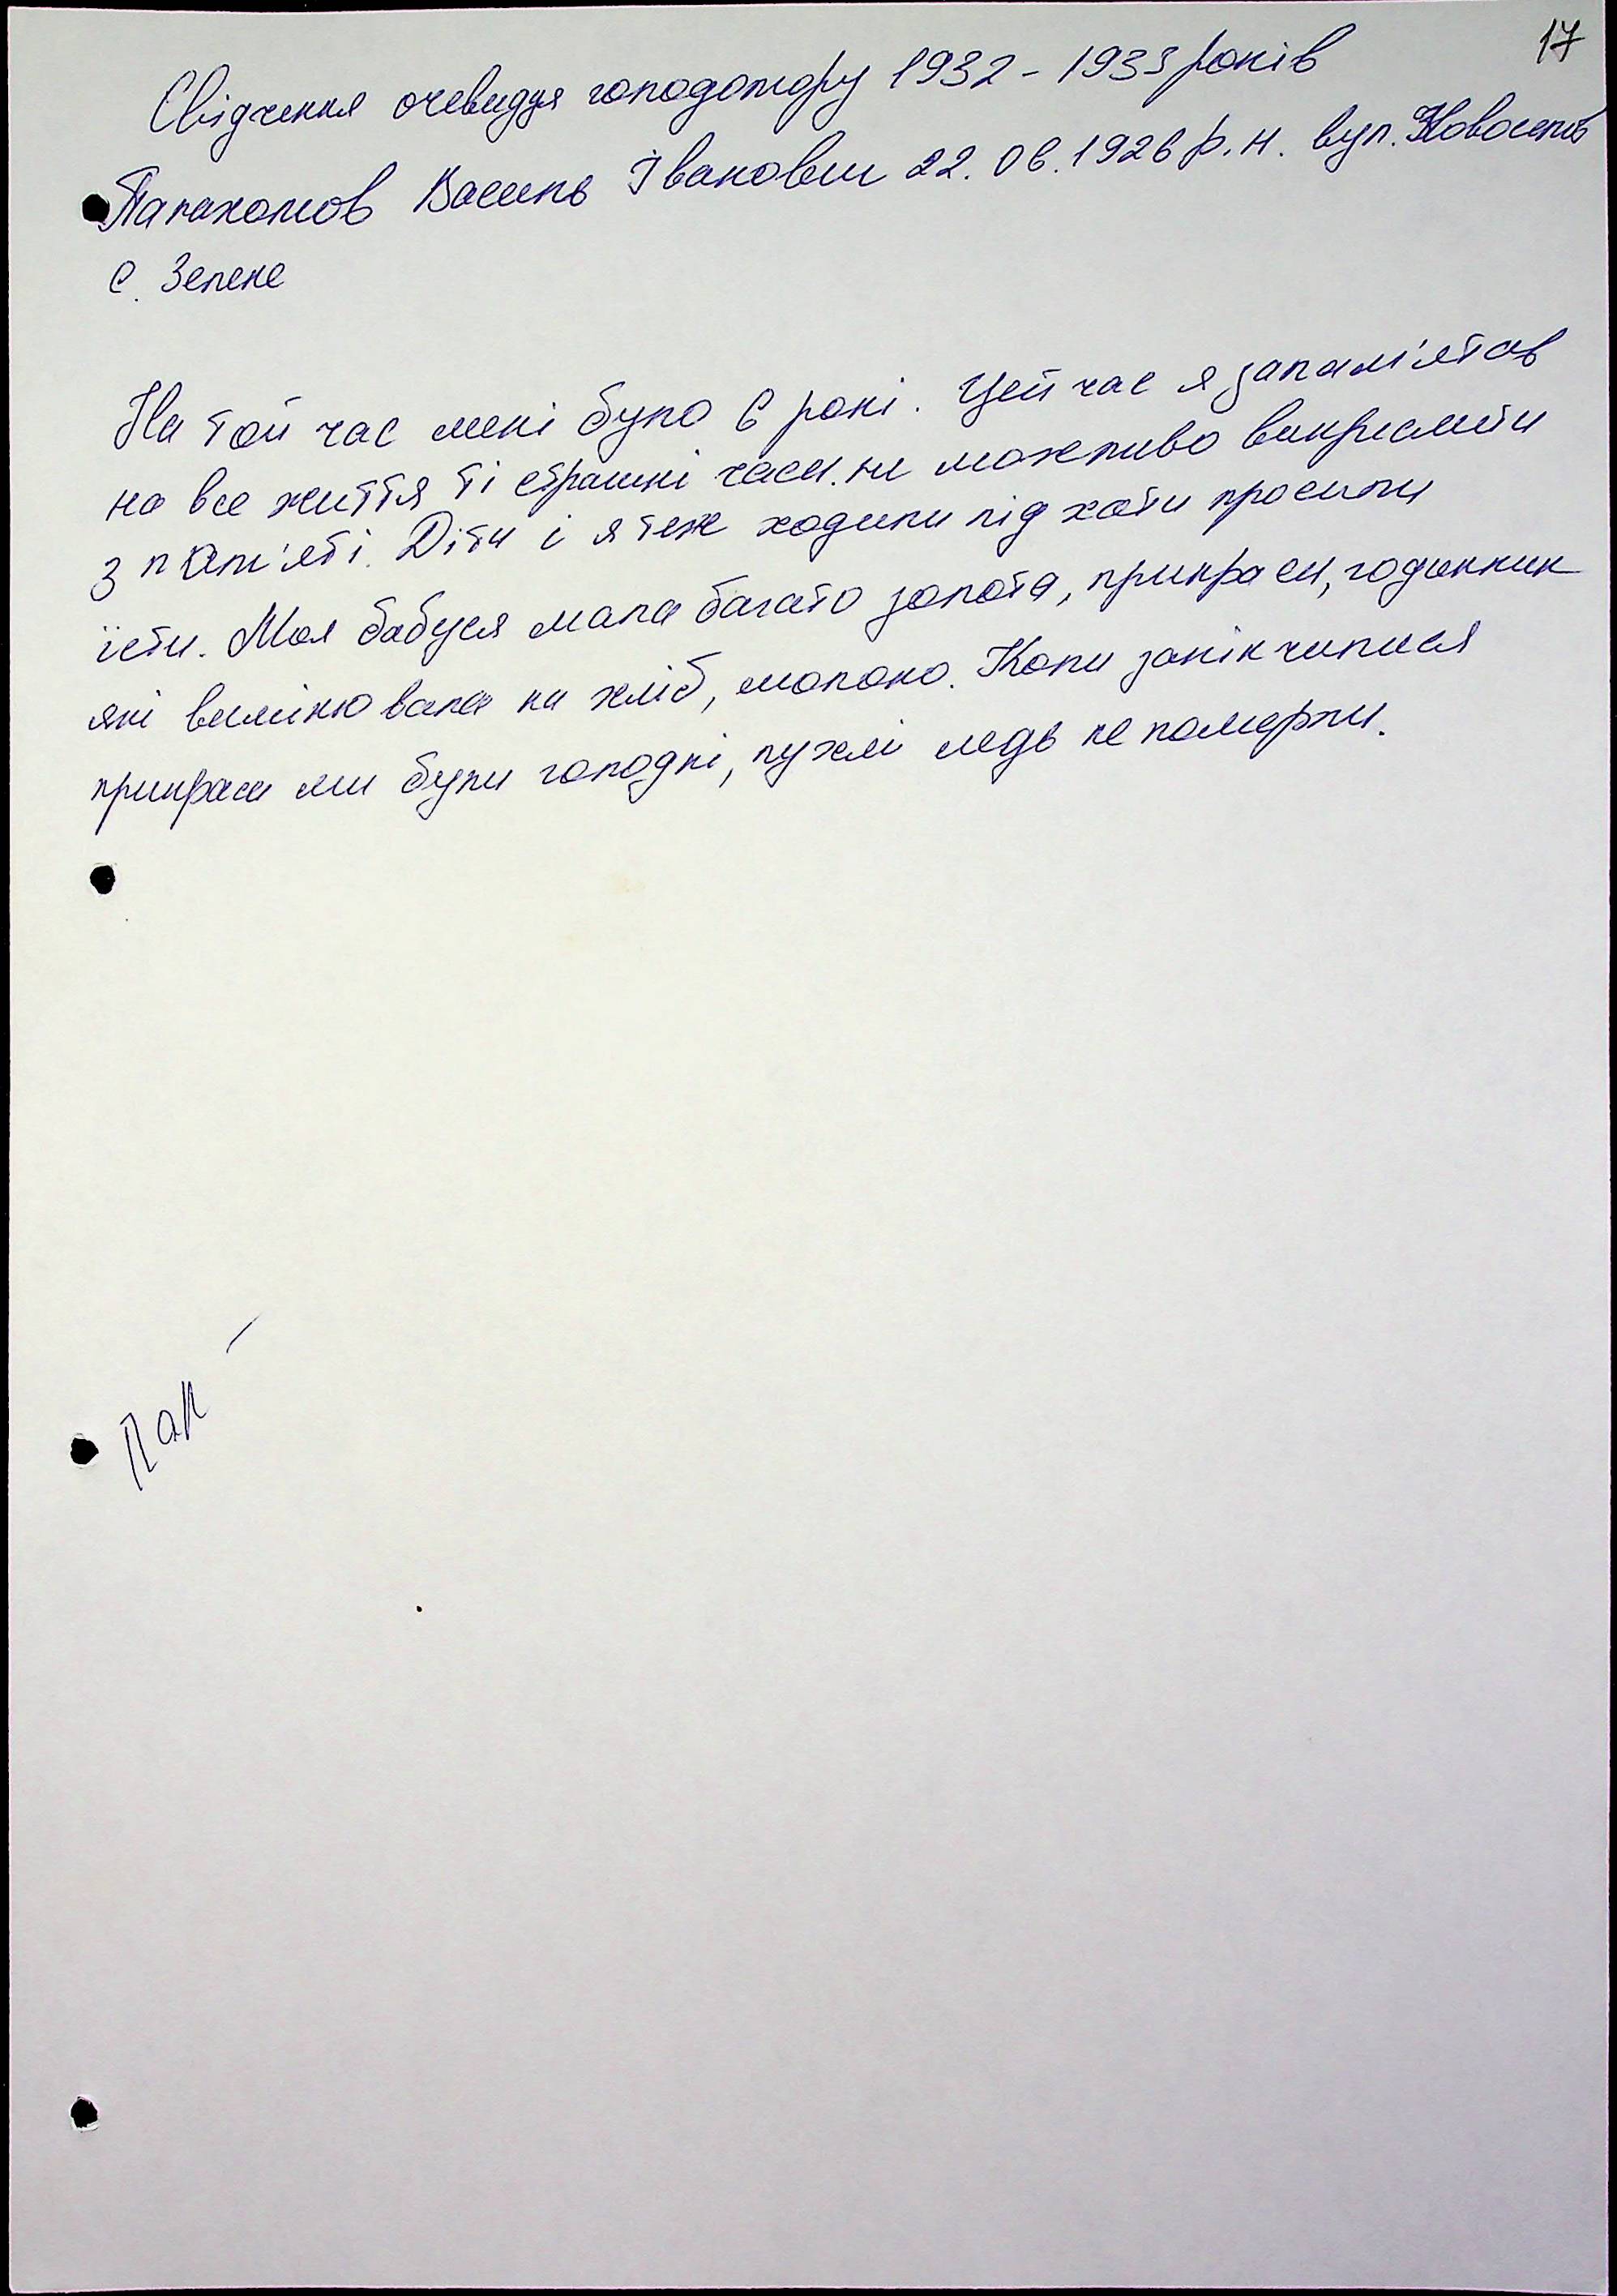 17
Свідчення очевидця голодомору 1932 - 1933 років
Папахомов Василь Іванович 22. 06. 1926 р. н. вул. Новоселів
с. Зелене
На той час мені було 6 рокі. Цей час я запам'ятав
на все життя ті страшні часи. не можливо викрислити
з пам'яті. Діти і я теж ходили під хати просили
їсти. Моя бабуся мала багато золота, прикраси, годинник
які вимінювала на хліб, молоко. Коли закікчилися
прикраси ми були голодні, пухлі ледь не померли.
Пап